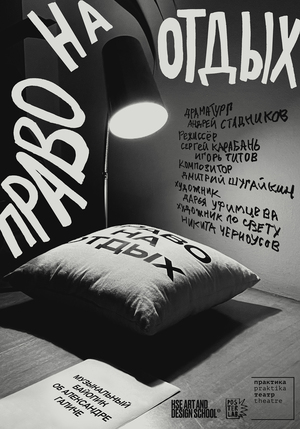 ПРАВО НА ОТДЫХ
ДРАМАТУРГ
АНДРЕЙ СТАДНИКОВ
РЕЖИССЁР
СЕРГЕЙ КАРАБАНЬ
ИГОРЬ ТИТОВ
КОМПОЗИТОР
ДМИТРИЙ ШУГАЙКИН
ХУДОЖНИК
ДАРЬЯ УФИМЦЕВА
ХУДОЖНИК ПО СВЕТУ
НИКИТА ЧЕРНОУСОВ
ПРАВО
НА
ОТДЫХ
МУЗЫКАЛЬНЫЙ
БАЙОПИК
ОБ АЛЕКСАНДРЕ
ГАЛИЧЕ
HSE ART AND
DESIGN SCHOOL
POS
TER
LAB
практика
praktika
театр
theatre